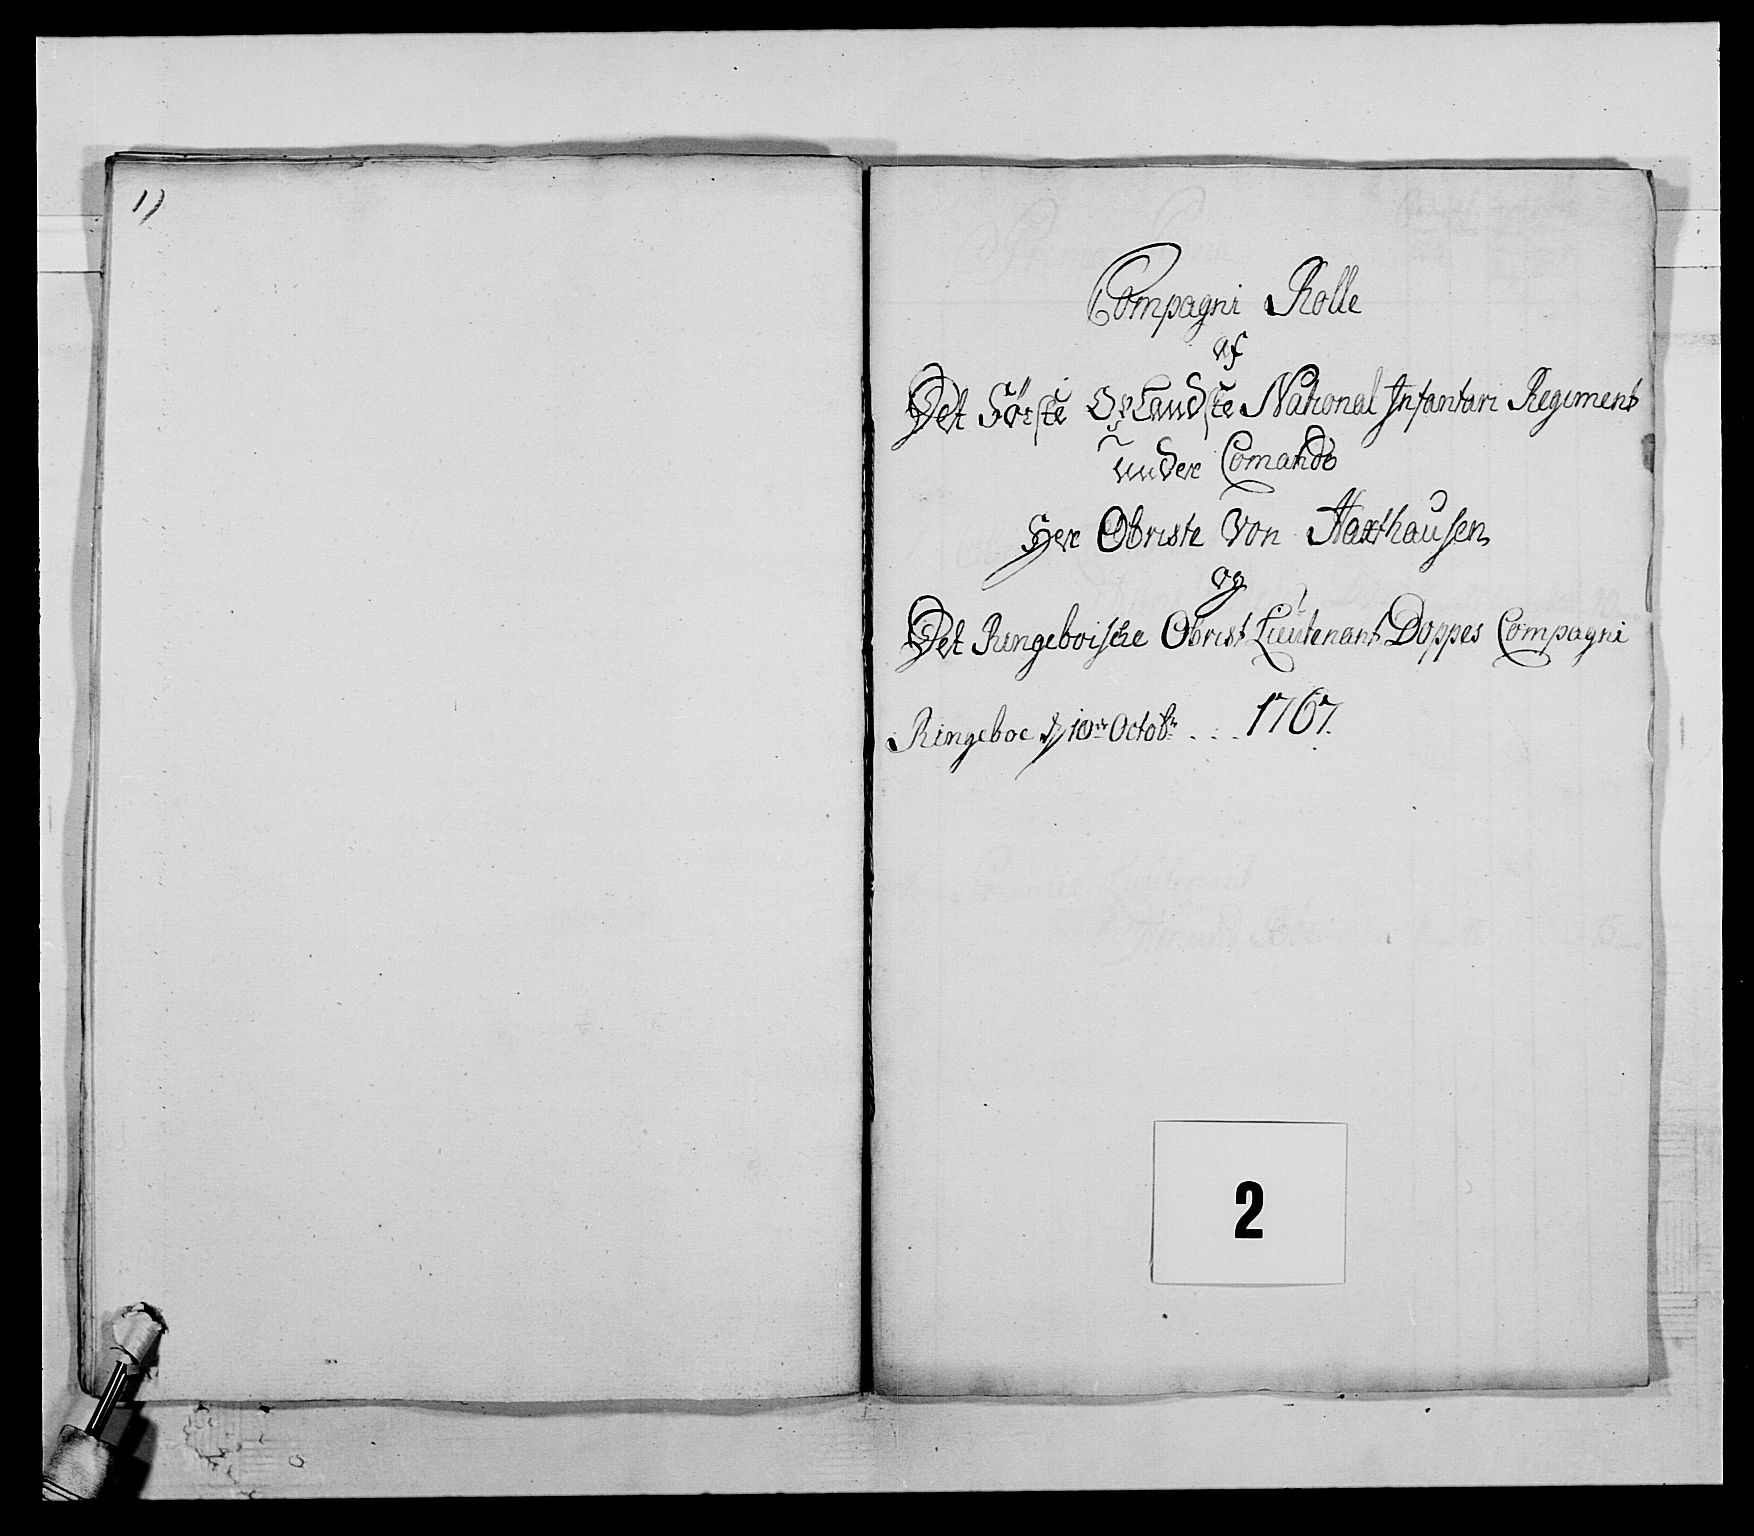 1)
Compagni Rolle
af
Det Förste Oplandske National Infantari Regiment
under Comando
Herr Obriste Von Haxthausen
og
Det Ringeboiske Obrist Lieutenant Doppes Compagni
Ringeboe d 10de Octobr . . . 1767.
2